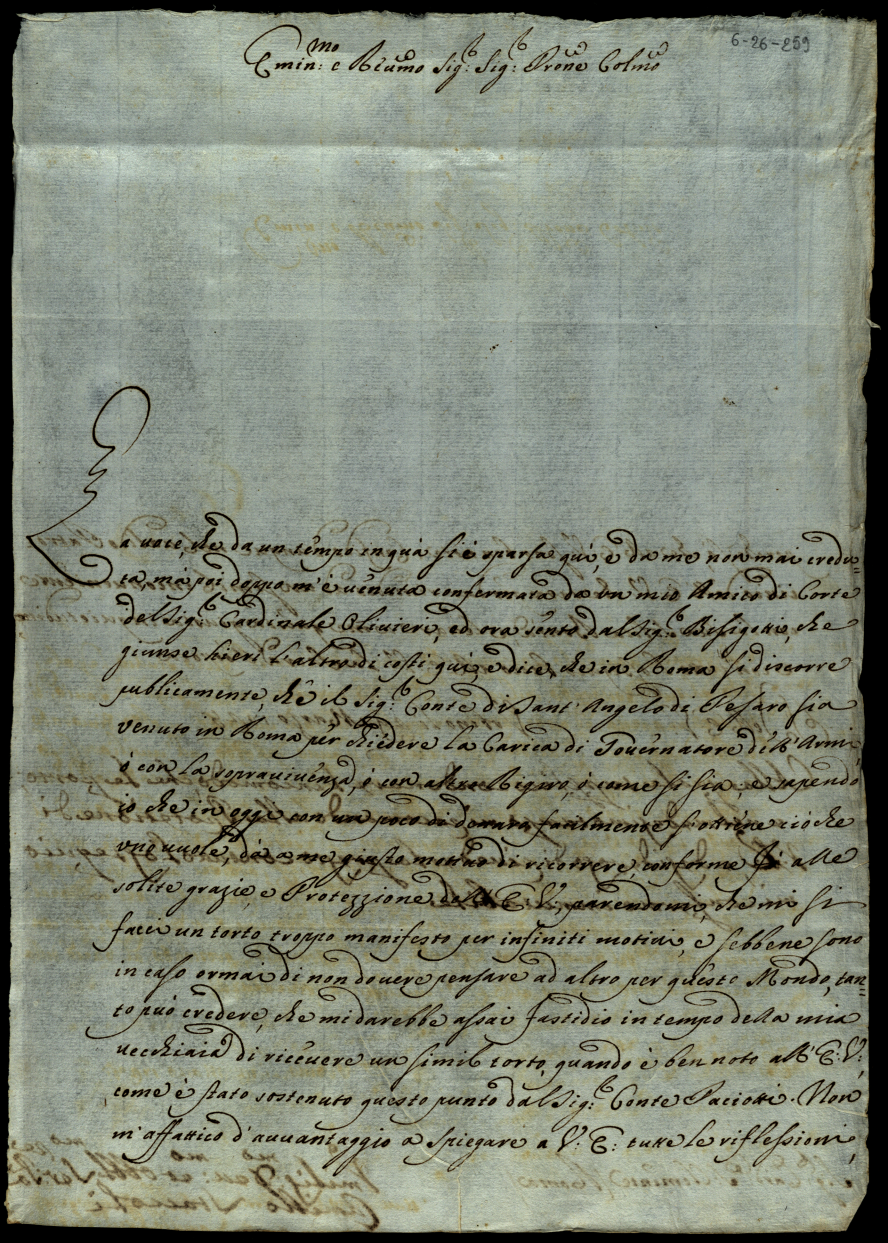 6-26-259
Emin:mo e Reumo Sig:r Sig:r Prone Colmo
La uoce, che da un tempo in quà si è sparsa quì, e da me non mai credu=
ta, mà poi doppo m'è uenuta confermata da un mio Amico di Corte
del Sig:r Cardinale Oliuieri, ed ora sento dal Sig:r Bisigotti, che
giunse hieri l'altro di costì quì, e dice, che in Roma si discorre
publicamente, che il Sig:r Conte di Sant' Angelo di Pesaro sia
venuto in Roma per chiedere la Carica di Gouernatore dell'Armi,
ò con la soprauiuenza, ò con altro Rigiro, ò come si sia; e sapendo
io che in oggi con un poco di denaro facilmente s'ottiene ciò che
uno uuole, dà a me giusto motiuo di ricorrere, conforme fò alle
solite grazie, e Protezzione dell' E: V:, parendomi, che mi si
facci un torto troppo manifesto per infiniti motiui, e sebbene sono
in caso ormai di non douere pensare ad altro per questo Mondo, tan=
to può credere, che mi darebbe assai fastidio in tempo della mia
uecchiaia di riceuere un simil torto, quando è ben noto all' E: V:,
come è stato sostenuto questo punto dal Sig:r Conte Paciotti. Non
m'affatico d'auuantaggio a spiegare a V: E: tutte le riflessioni,